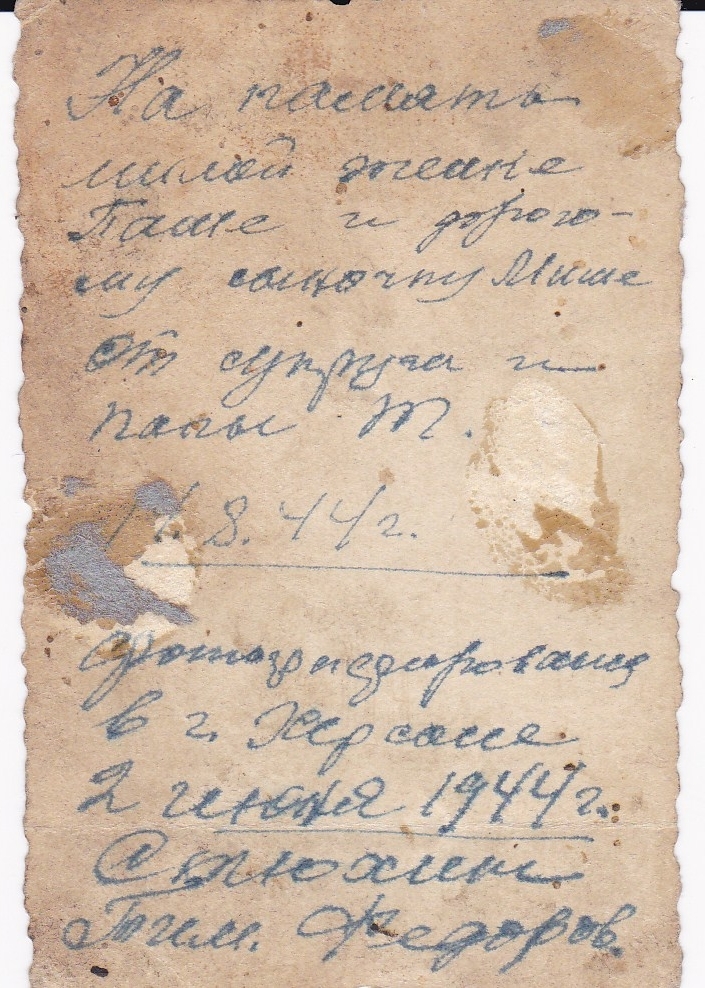 На память
милой жене
Паше и дорого-
му сыночку Мише
от супруга и
папы Т.
8. 44 г.
Фотографирован
в г. Херсоне
2 июня 1944 г.
Тим. Федоров.